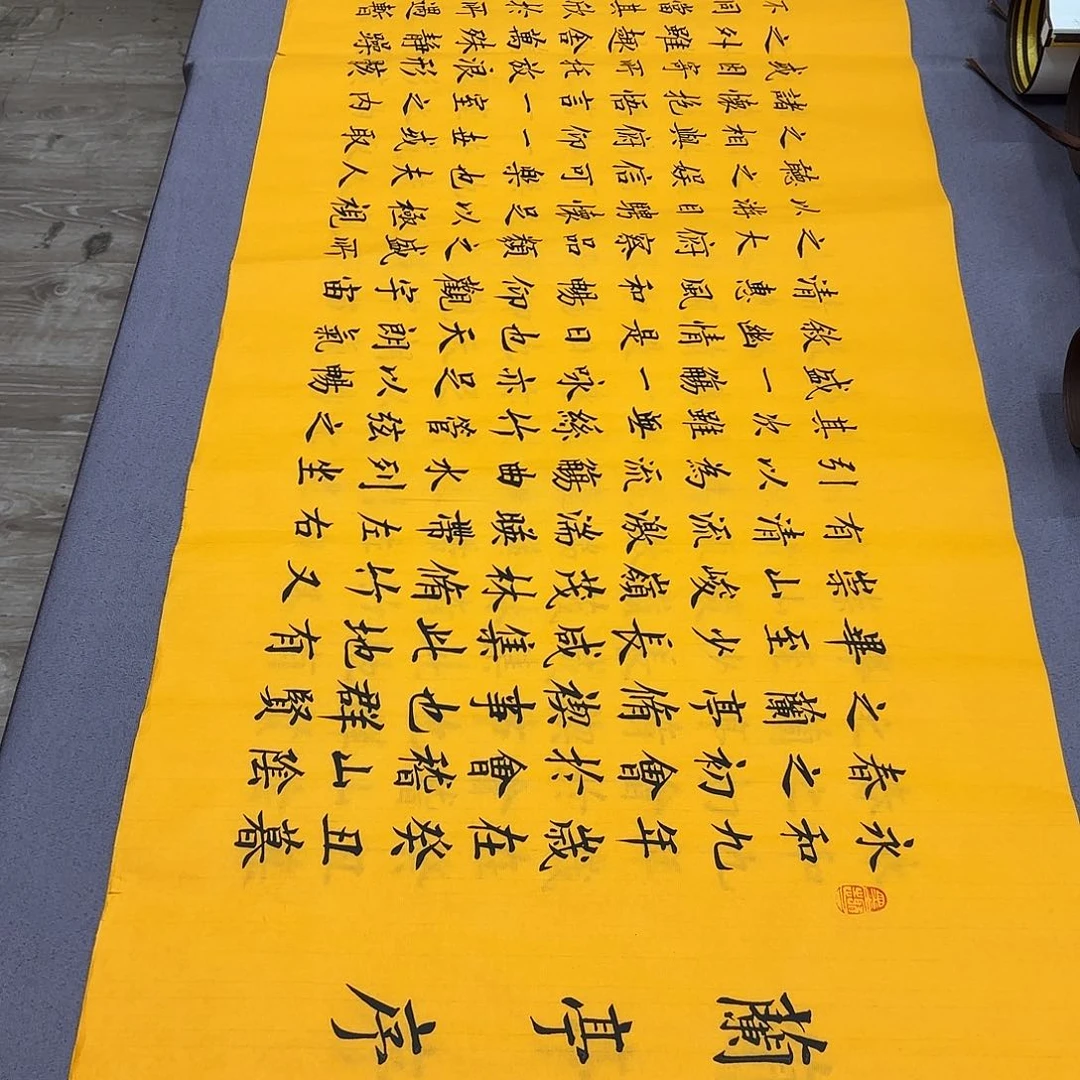 蘭亭序
永和九年歲在癸丑暮
春之初會於會稽山陰
之蘭亭脩禊事也群賢
畢至少長咸集此地有
崇山峻嶺茂林脩竹又
有清流激湍暎帶左右
引以為流觴曲水列坐
其次雖無絲竹管弦之
盛一觴一咏亦足以暢
敘幽情是日也天朗氣
清惠風和暢仰觀宇宙
之大俯察品類之盛所
以游目騁懷足以極視
聽之娛信可樂也夫人
之相與俯仰一世或取
諸懷抱悟言一室之內
或因寄所托放浪形骸
之外雖趣舍萬殊靜躁
不同當其欣於所遇暫